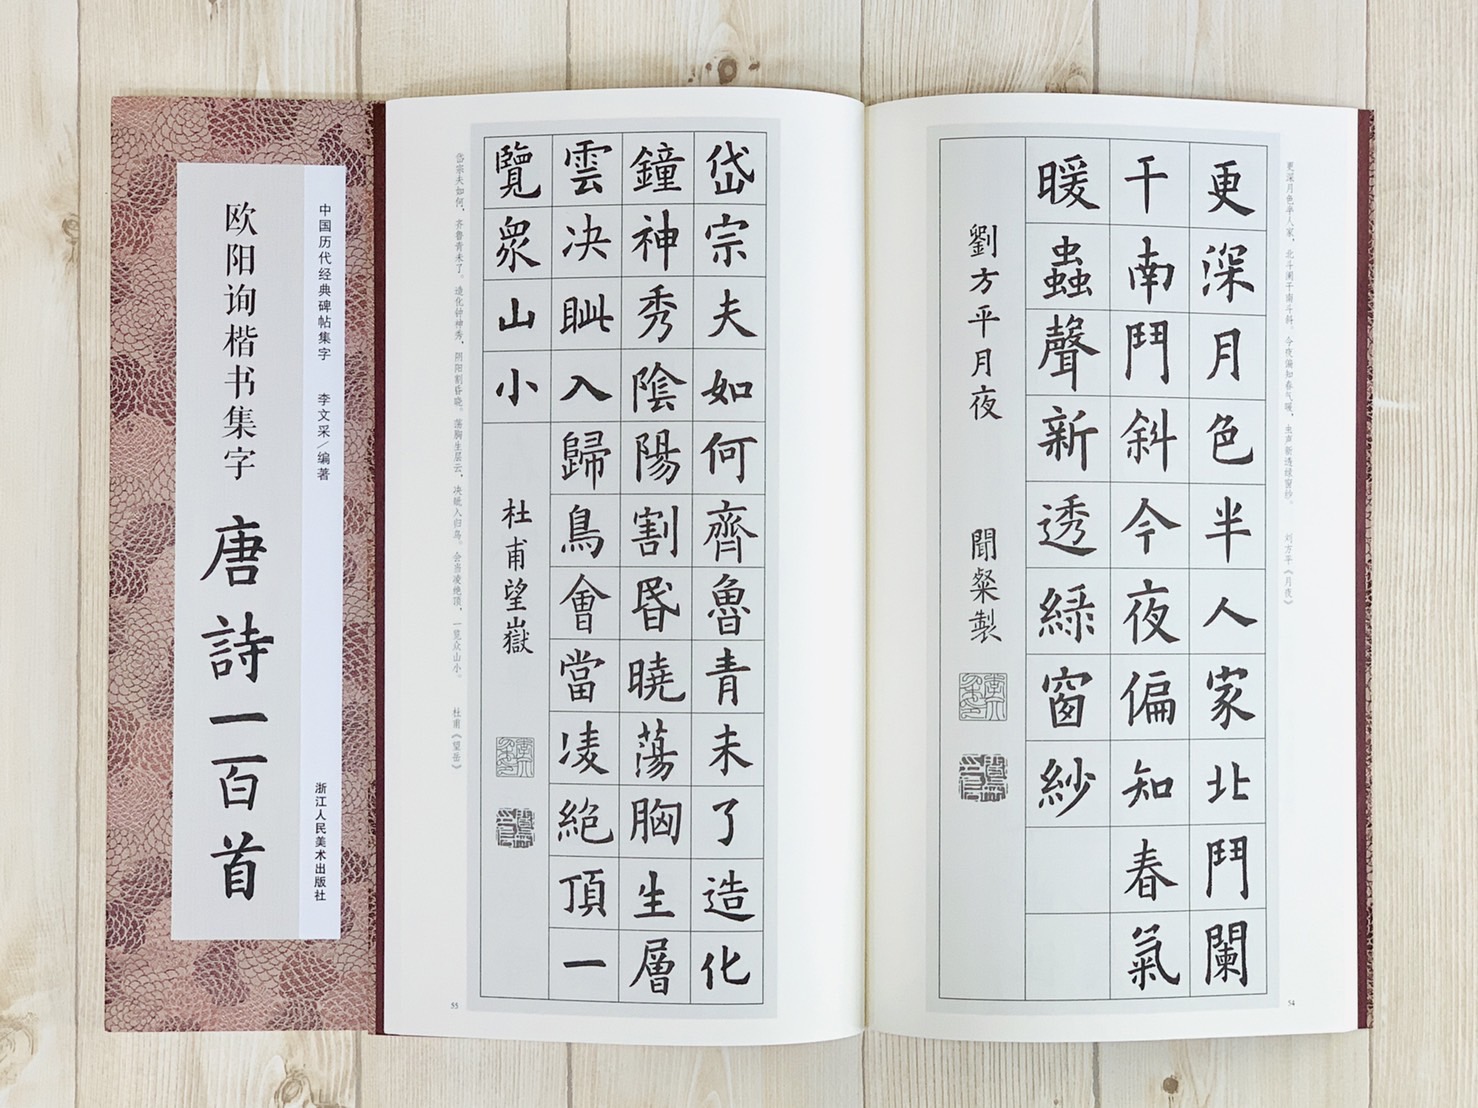 中国历代经典碑帖集字 李文采／编著 浙江人民美术出版社
欧阳询楷书集字 唐詩一百首
更深月色半人家，北斗阑干南斗斜。今夜偏知春气暖，虫声新透绿窗纱。 刘方平《月夜》
更深月色半人家北鬥闌
干南鬥斜今夜偏知春氣
暖蟲聲新透綠窗紗
劉方平月夜 聞粲製
54
岱宗夫如何齊魯青未了造化
鐘神秀陰陽割昬曉蕩胸生層
雲决眦入歸鳥會當凌絶頂一
覽衆山小
杜甫望嶽
岱宗夫如何，齐鲁青未了。造化钟神秀，阴阳割昏晓。荡胸生层云，决眦入归鸟。会当凌绝顶，一览众山小。 杜甫《望岳》
55